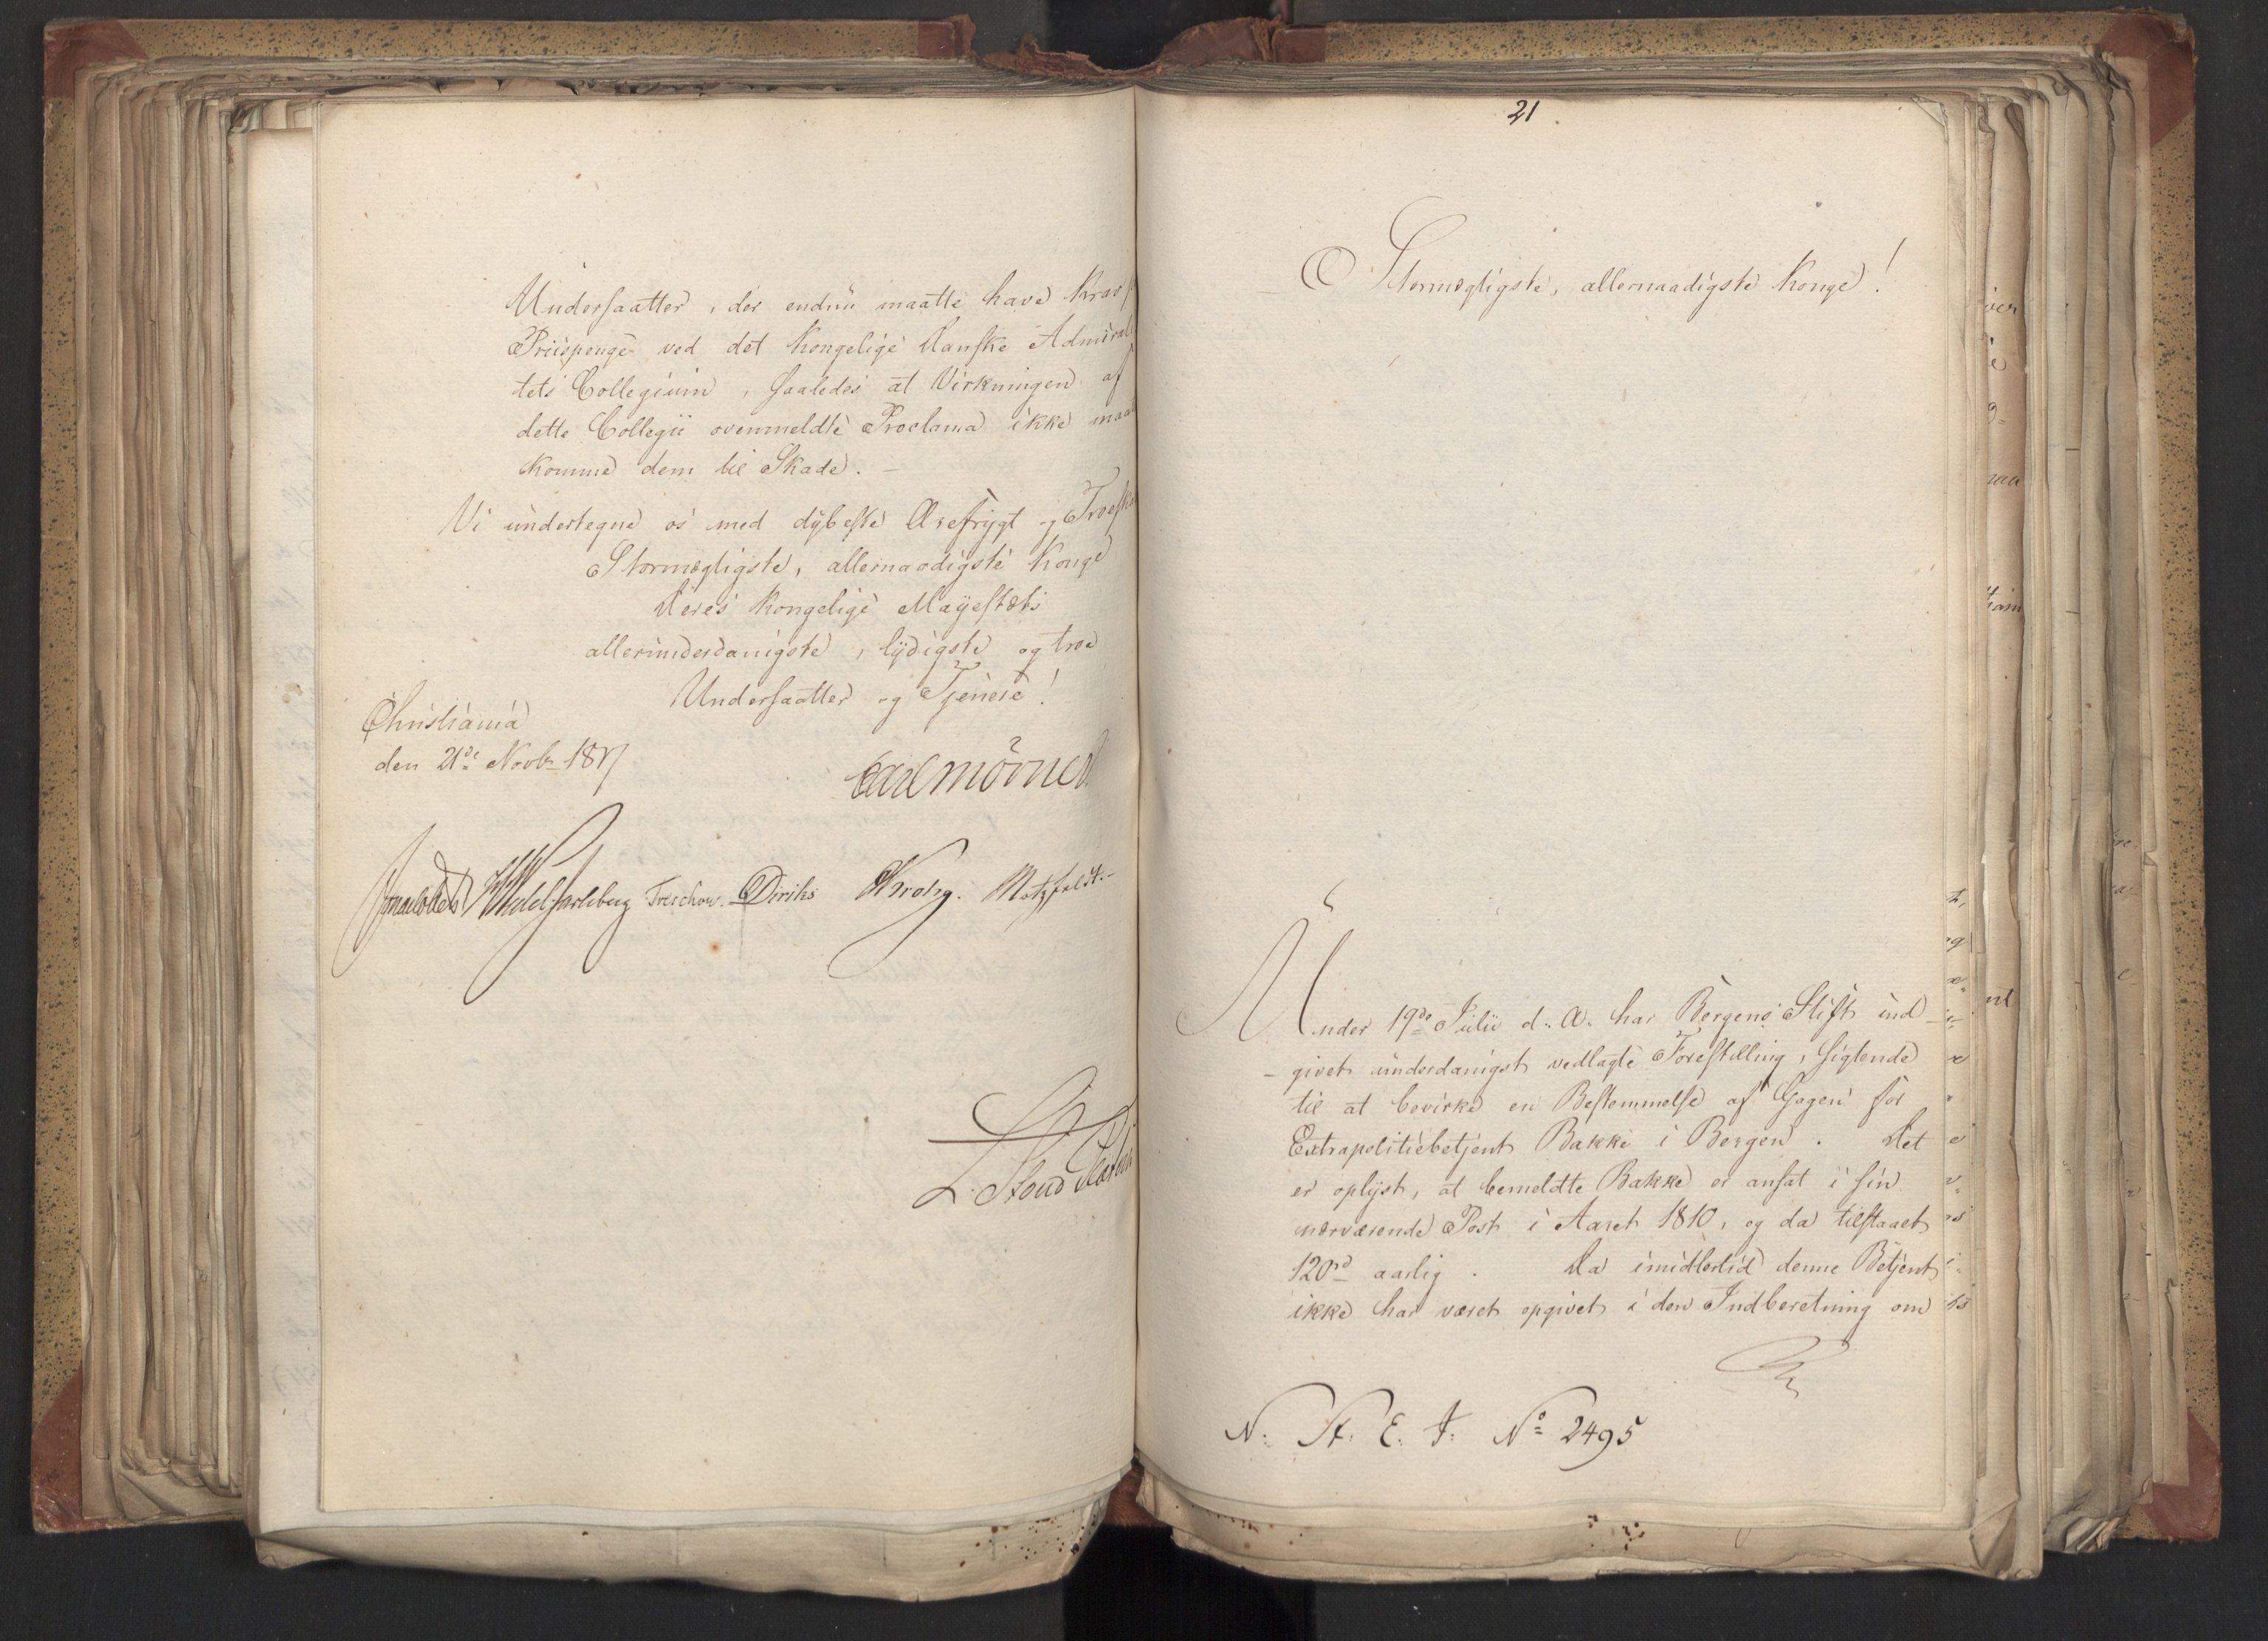 Undersaatter, der endnu maatte have Krav p
Priispenge ved det Kongelige Danske Admiral
tets Collegium, saaledes at Virkningen af
dette Collegii ovenmeldte Proclama ikke maa
komme dem til Skade. —
Vi undertegne os med dybeste Ærefrygt og Troeska
Stormægtigste, allernaadigste Konge
Deres Kongelige Mayestæts
allerunderdanigste, lydigste og troe
Undersaatter og Tjenere!
Christiania
den 21de Novbr 1817
Carl Mörner
Wedel Jarlsberg Treschow. Diriks Krohg. Motzfeldt.-
L. Stoud Platou
21.
Stormægtigste, allernaadigste Konge!
Under 19de Julii d: A: har Bergens Stift ind-
-givet underdanigst vedlagte Forestilling, sigtende
til at bevirke en Bestemmelse af Gagen for
Extrapolitiebetjent Bakke i Bergen. Det
er oplyst, at bemeldte Bakke er ansat i sin
nærværende Post i Aaret 1810, og da tilstaaet
120rd aarlig. Da imidlertid denne Betjent
ikke har været opgivet i den Indberetning om
N: St. E: J: No 2495